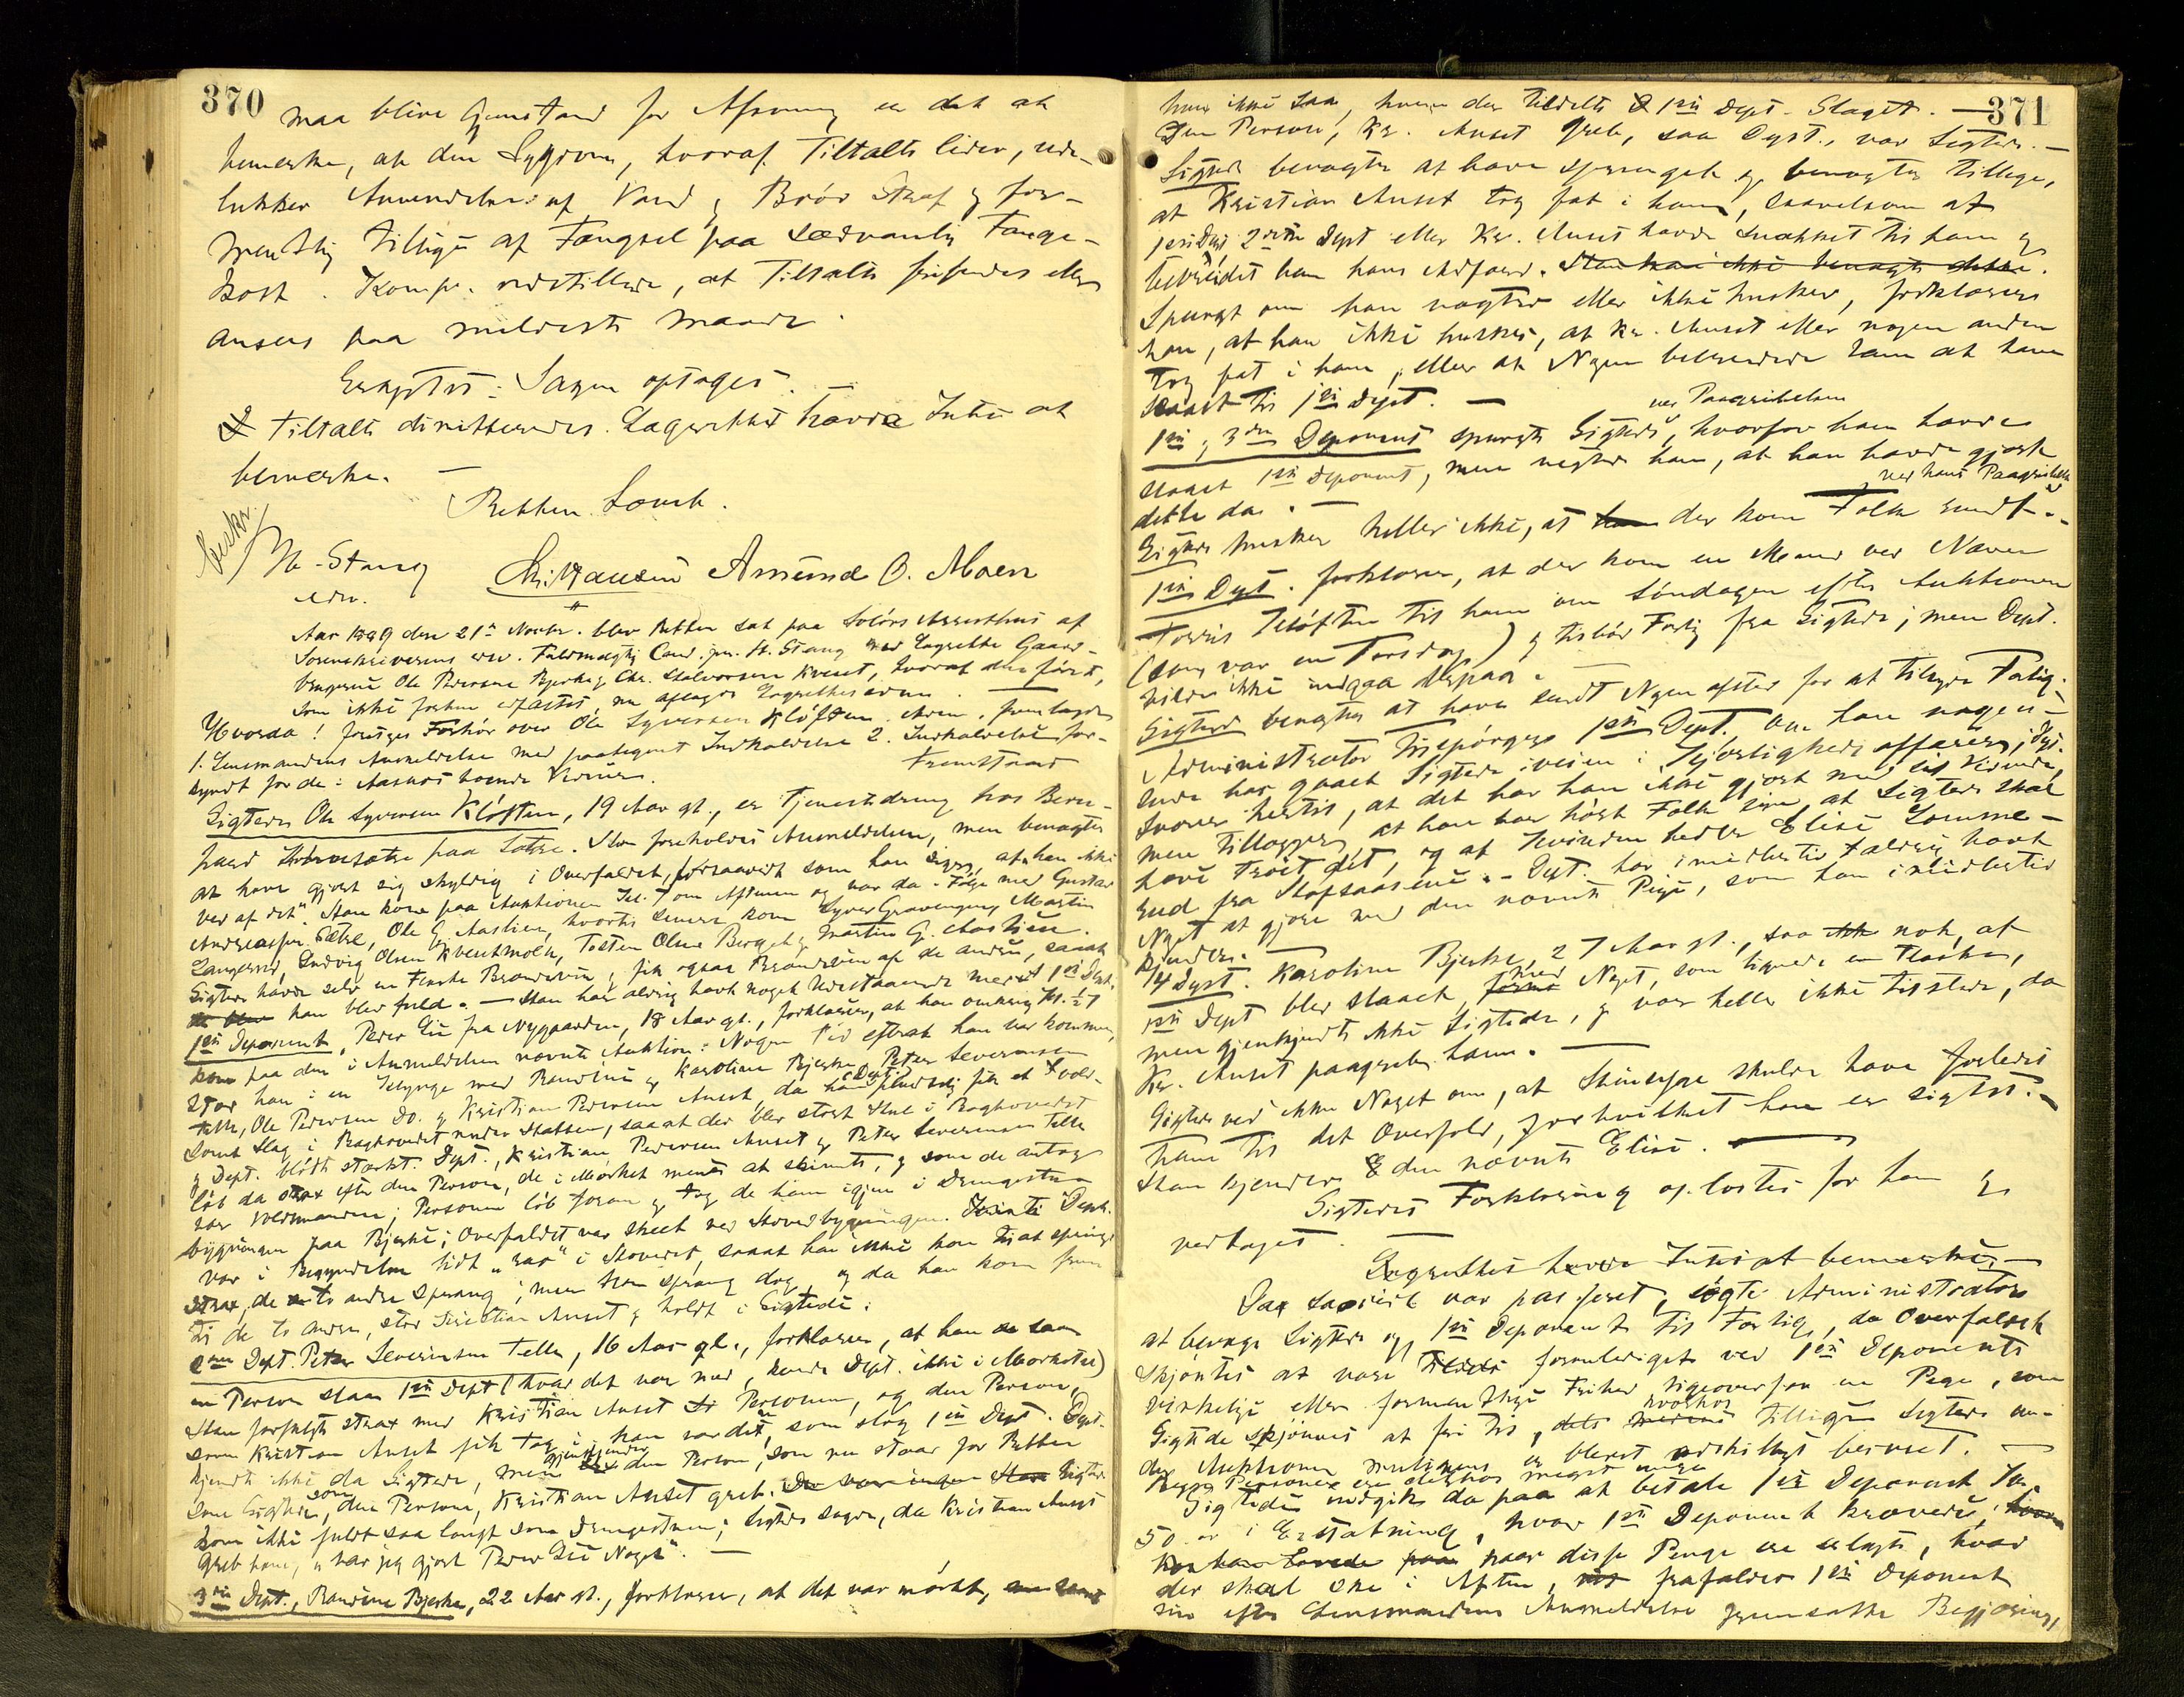 370
maa blive Gjenstand for Afsoning er det at
bemerke, at den Sygdom, hvoraf Tiltalte lider, ude-
lukker Anvendelse af Vand & Brød Straf & for-
mentlig tillige af Fængsel paa sædvanlig Fange-
kost. Komp. nedstillede, at Tiltalte frifindes eller
ansees paa mildeste Maade.
Eragtet: Sagen optages.
Tiltalte dimitteredes. Lagrettet havde Intet at
bemerke. —
Retten hævet.
beskr.
H. Stang Chr. Hansen Amund O. Moen
edv.
Aar 1889 den 21de Novbr. blev Retten sat paa Solørs Arresthus af
Sorenskriverens edsv. Fuldmægtig Cand. jur. H. Stang med Lagrette Gaard-
brugerne Ole Pedersen Bjerke & Chr. Halvorsen Kveset, hvoraf den første,
som ikke forhen edfæstet, nu aflagde Lagretteseden. —
Hvorda! foretoges Forhør over Ole Syversen Kløften. Adm. fremlagde
1. Lensmandens Anmeldelse med paategnet Indkaldelse 2. Indkaldelse for-
kyndt for de i Aasnes boende Vidner. Fremstaar
Sigtede Ole Syversen Kløften, 19 Aar gl., er Tjenestedreng hos
paa Sætre. Han foreholdes Anmeldelsen, men benægter
at have gjort sig skyldig i Overfaldet, forsaavidt som han siger, at han ikke
"ved af det". Han kom paa Auktionen Kl. 7 om Aftenen og var da i Følge med Gustav
Andreassen Sætre, Ole G. Aaslien, hvortil senere kom Syver Gravengen, Martin
Langerud, Ludvig Olsen Kvesetmoen, Tosten Olsen Berget & Martin G. Aaslien.
Sigtede havde selv en Flaske Brændevin & fik ogsaa Brændevin af de andre, saaat
han blev fuld. — Han har aldrig havt noget Udestaaende med 1ste Dept.
1ste Deponent, Peder Lie fra Nygaarden, 18 Aar gl., forklarer, at han omkring Kl. ½ 7
kom paa den i Anmeldelsen nævnte Auktion. Nogen Tid efterat han var kommen,
stod han i en Klynge med Randine & Karoline Bjerke, Peter Severinsen
Telle, Ole Pedersen Do. & Kristian Pedersen Auset, da han (Dept.) pludselig fik et vold-
somt Slag i Baghovedet under Hatten, saaat der blev stort Hul i Baghovedet
& Dept. blødte stærkt. Dept., Kristian Pedersen Auset & Peter Severinsen Telle
løb da strax efter den Person, de i Mørket mente at skimte, & som de antog
var Voldsmanden; Personen løb foran & tog de ham igjen i Drengestue-
bygningen paa Bjerke; Overfaldet var skeet ved Hovedbygningen. Dept.
var i Begyndelsen lidt "raa" i Hovedet, saaat han ikke kom til at springe
strax, de to andre sprang; men han sprang dog, og da han kom frem
til de to andre, stod Kristian Auset & holdt i Sigtede.
2den Dept. Peter Severinsen Telle, 16 Aar gl., forklarer, at han saa
en Person slaa 1ste Dept. (hvad det var med, kunde Dept. ikke i Mørket se)
Han forfulgte strax med Kristian Auset Personen, og den Person,
som Kristian Auset fik tag i, han var det, som slog 1ste Dept. Dept.
kjendte ikke da Sigtede, men gjenkjender den Person, som nu staar for Retten
som Sigtede, som den Person, Kristian Auset greb. Der var ingen Sigtede
kom ikke fuldt saa langt som Drengestuen; Sigtede sagde, da Kristian Auset
greb ham, "har jeg gjort Peder Lie Noget". —
3die Dept., Randine Bjerke, 22 Aar gl., forklarer, at det var mørkt,
371
hun ikke saa, hvem der tildelte 1ste Dept. Slaget. —
Den Person, Kr. Auset greb, saa Dept., var Sigtede. —
Sigtede benægter at have sprunget & benægter tillige,
at Kristian Auset tog fat i ham, saavelsom at
2den Dept. eller Kr. Auset havde snakket til ham &
bebreidet ham hans Adfærd. Han kan ikke benægte dette.
Spurgt om han nægter eller ikke husker, forklarer
han, at han ikke husker, at Kr. Auset eller nogen anden
tog fat i ham, eller at Nogen bebreidede ham at have
slaaet til 1ste Dept. —
ved Paagribelsen
1ste & 3die Deponent spurgte Sigtede, hvorfor han havde
slaaet 1ste Deponent, men negtede han, at han havde gjort
dette da. —
ved hans Paagribelse
Sigtede husker heller ikke, at der kom Folk sundt.
1ste Dept. forklarer, at der kom en Mand ved Navn
Kløften til ham om Søndagen efter Auktionen
(som var en Torsdag) & tilbød Forlig fra Sigtede; men Dept.
vilde ikke indgaa derpaa. —
Sigtede benægter at have sendt Nogen afsted for at tilbyde Forlig.
Administrator tilspørger 1ste Dept. om han nogen-
sinde har gaaet Sigtede iveien i Kjærlighedsaffærer; Dept.
svarer hertil, at det har han ikke gjort med sit Vidende,
men tillægger at han har hørt Folk sige, at Sigtede skal
have troet det, og at Kvinden heder Elise Lomme-
rud fra Hofsaasene. — Dept. har imidlertid aldrig havt
Noget at gjøre med den nævnte Pige, som han imidlertid
kjender. —
4 Dept. Karoline Bjerke, 27 Aar gl., saa nok, at
1ste Dept. blev slaaet med Noget, som lignede en Flaske,
men gjenkjendte ikke Sigtede, & var heller ikke tilstede, da
Kr. Auset paagreb ham. —
Sigtede ved ikke Noget om, at Skinsyge skulde have forledet
ham til det Overfald, for hvilket han er sigtet. —
Han kjender den nævnte Elise. —
Sigtedes Forklaring oplæstes for ham &
vedtoges. —
Lagrettet havde Intet at bemerke. —
Da saavidt var passeret, søgte Administrator
at bevæge Sigtede og 1ste Deponent til Forlig, da Overfaldet
skjøntes at være foranlediget ved 1ste Deponents
virkelige eller formentlige Frihed ligeoverfor en Pige, som
Sigtede skjønnes at fri til, hvorhos tillige Sigtede un-
der Auktionen er blevet adskilligt beruset. —
Begge Personer ere derhos meget unge
Sigtede indgik da paa at betale 1ste Deponent Kr.
50 ør i Erstatning, hvor 1ste Deponent krævede,
naar disse Penge ere erlagte, hvad
der skal ske i Aften, frafalder 1ste Deponent
sin efter Lensmandens Anmeldelse fremsatte Begjæring,